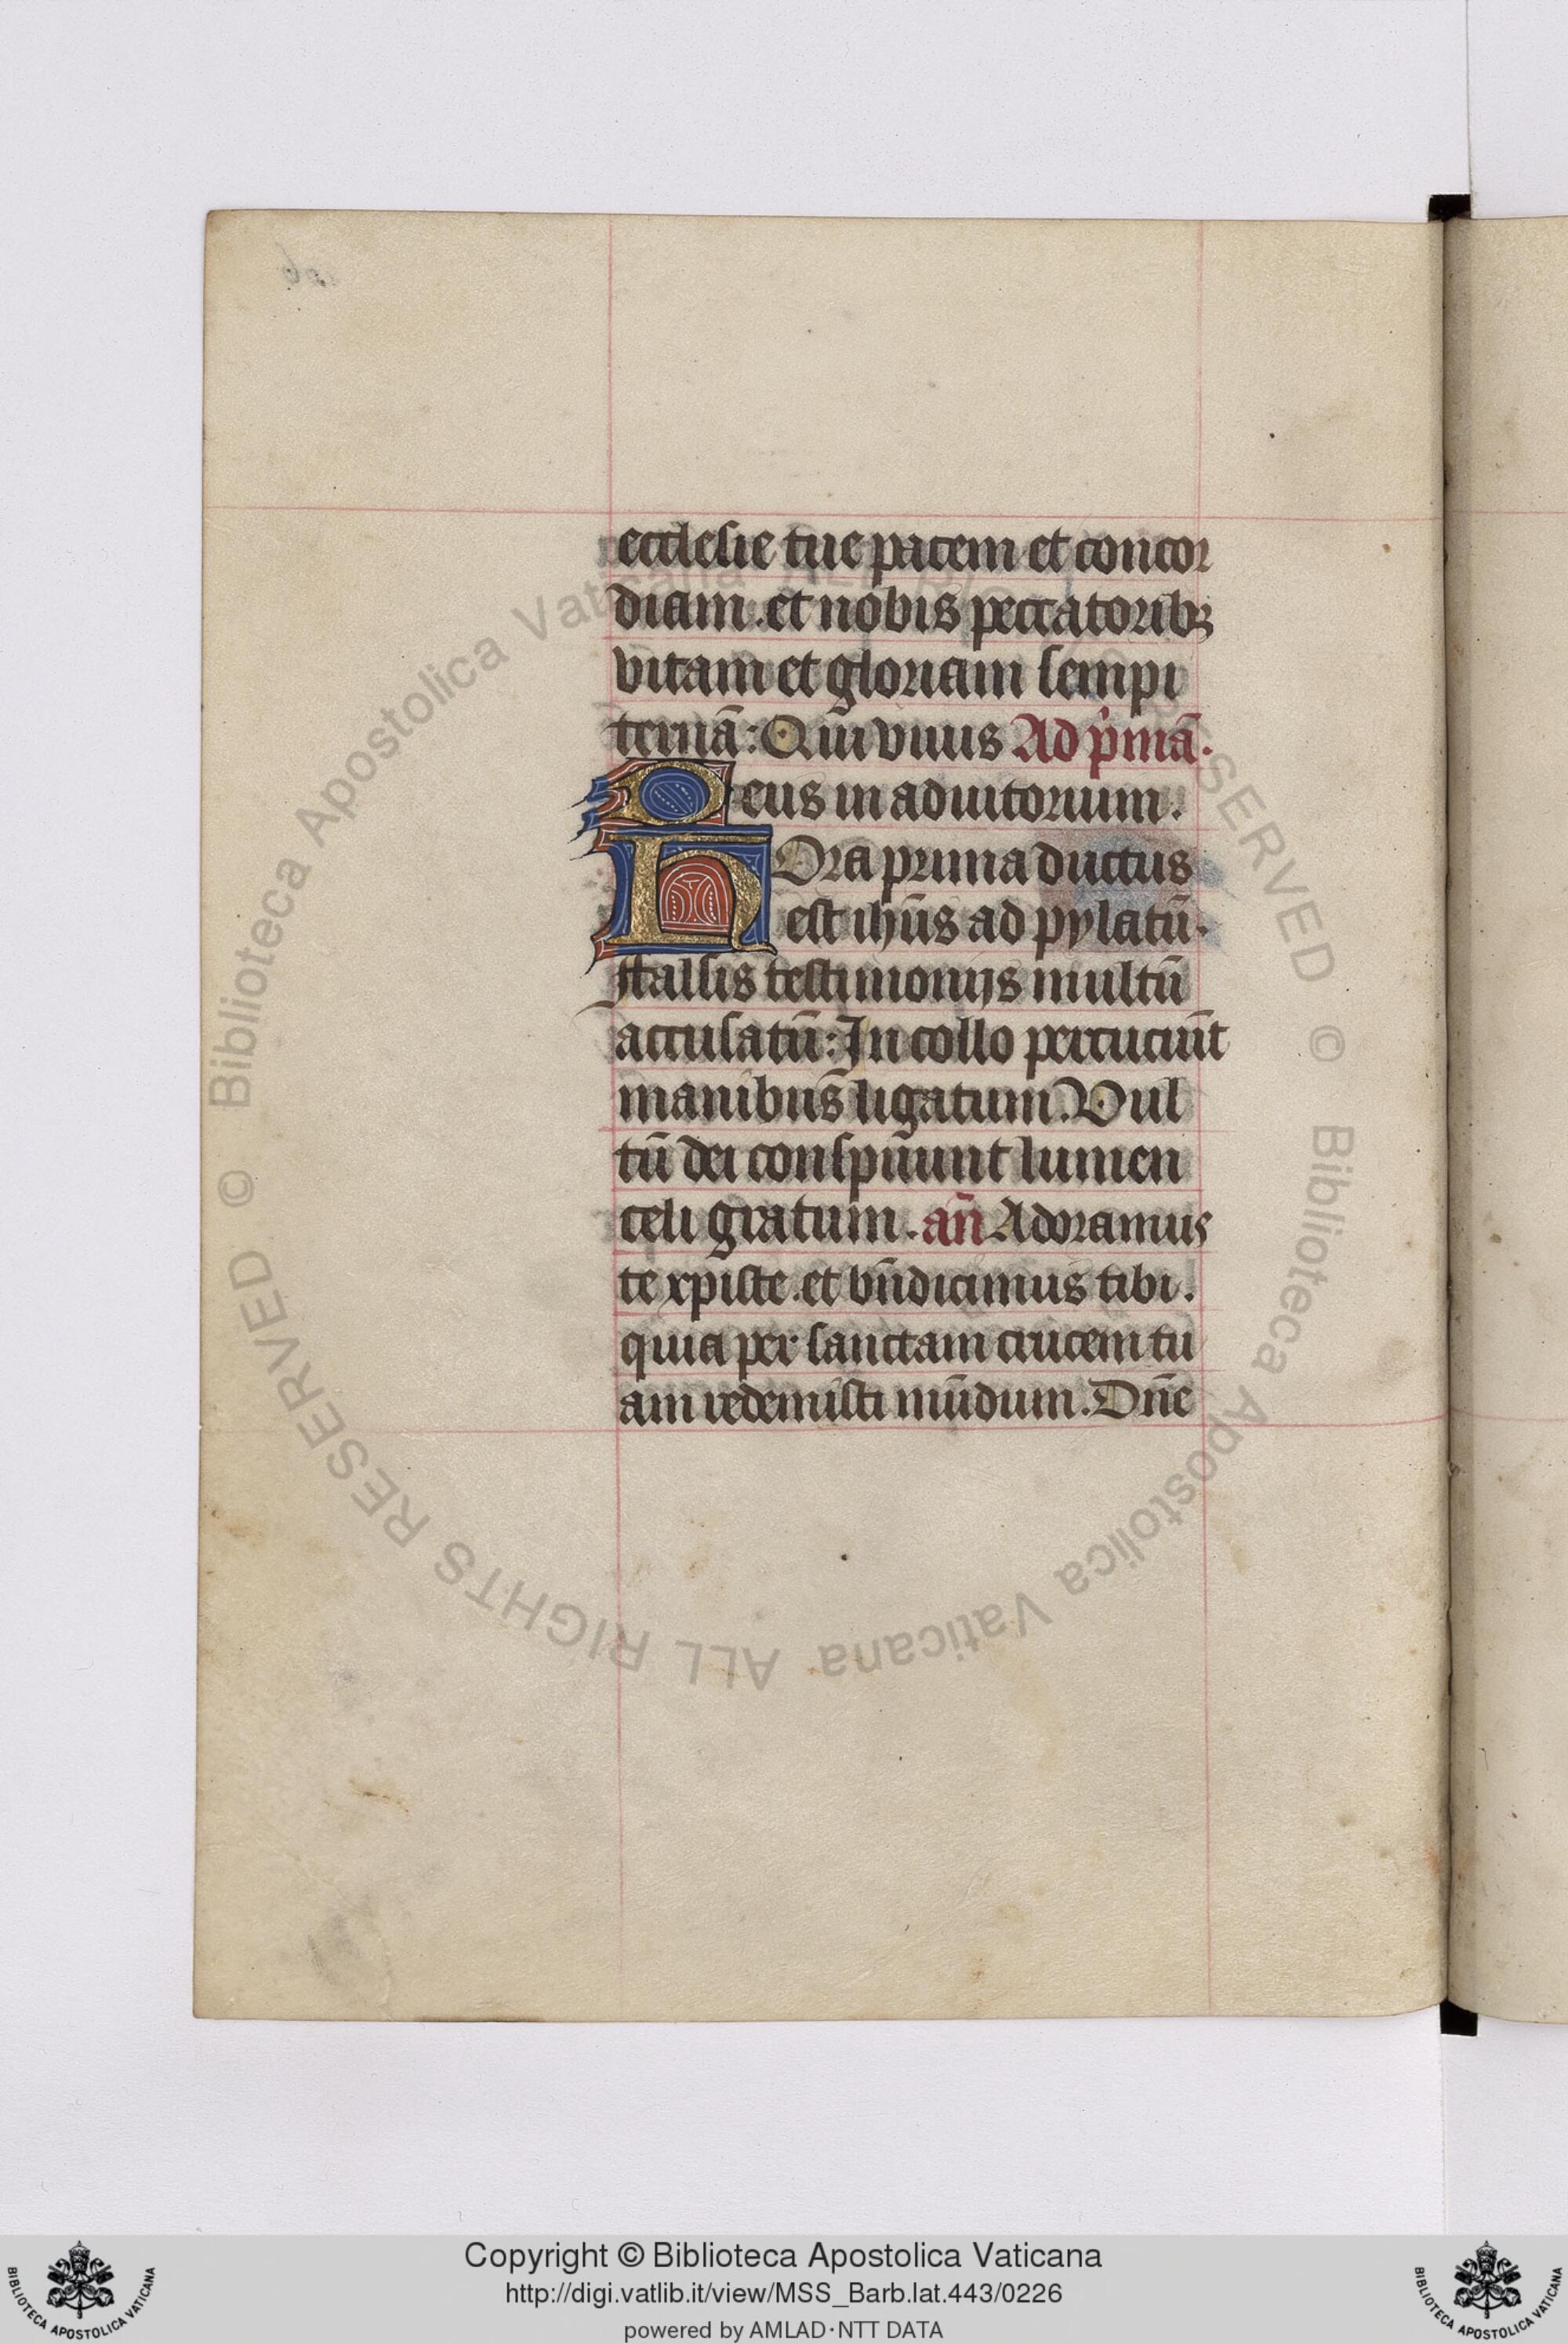 ecclesie tue pacem et concor
diam. et nobis peccatoribꝫ
vitam et gloriam sempi
ternā: Qui viuis Ad p̍mā.
Deus in adiutorium.
HOra prima ductus
est ihūs ad pylatū.
ffalsis testimonijs multū
accusatū: In collo percuciūt
manibus ligatum. Vul
tū dei conspuunt lumen
celi gratum. an̄ Adoramus
te xpiste. et bn̄dicimus tibi.
quia per sanctam crucem tu
am redemisti mūdum. Dn̄e
© Biblioteca Apostolica Vaticana ALL RIGHTS RESERVED
© Biblioteca Apostolica Vaticana ALL RIGHTS RESERVED
Copyright © Biblioteca Apostolica Vaticana
http://digi.vatlib.it/view/MSS_Barb.lat.443/0226
powered by AMLAD·NTT DATA
BIBLIOTECA APOSTOLICA VATICANA
BIBLIOTECA APOSTOLICA VATICANA